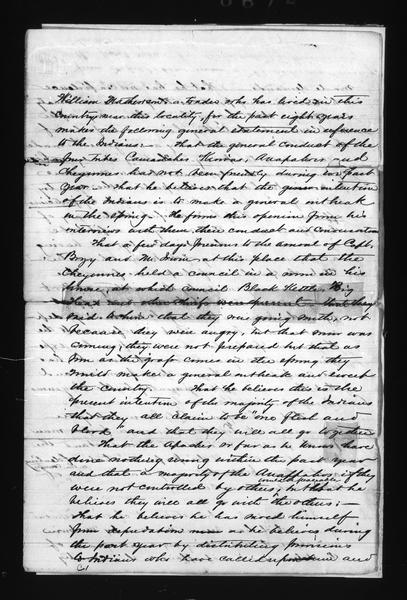 William Mathewson, a trader who has lived in this
Country near this locality, for the past eight years
makes the following general statement in reference
to the Indians. That the general conduct of the
five Tribes Camanches Kiowas, Arapahoes and
Cheyennes had not been friendly during the past
year - That he believes that the intention
of the Indians is to make a general outbreak
in the Spring. He forms this opinion from his
interviews with them, their conduct and Conversation
That a few days previous to the arrival of Capt.
Bogy and Mr Irwin at this place that the
Cheyennes, held a council in a room in his
house, at which council Black Kettle, Big
Head and other chiefs were present - that they
said to him that they was going south, not
because they were angry, but that snow was
coming, they were not prepared but that as
soon as the grass came in the spring they
would make a general outbreak and sweep
the country. That he believes this is the
present intention of the majority of the Indians
that they all claim to be "one flesh and
blood" and that they will all go together
That the Apaches so far as he knows have
done nothing wrong within the past year
and that a majority of the Arapahoes if they
were not controlled by others, would be peaceable but that he
believes they will all go with the others:
That he believes he has saved himself
from depredation he believes during
the past year by distributing provisions
to Indians who have called upon him and